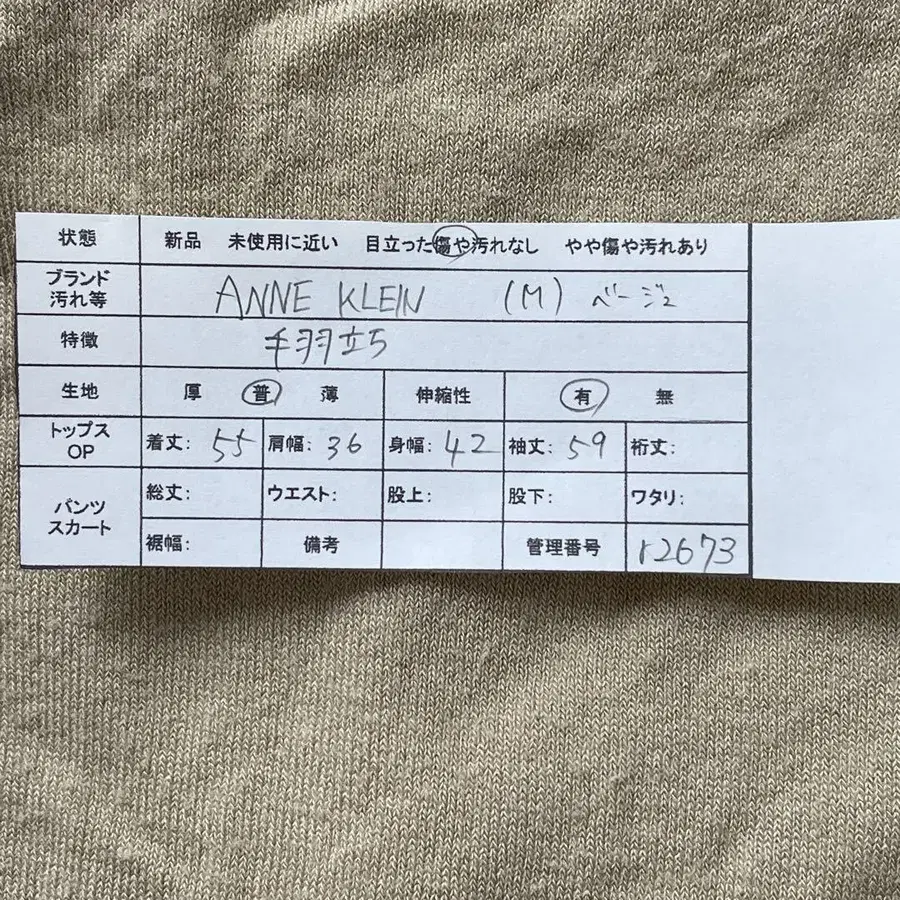 状態 新品 未使用に近い 目立った傷や汚れなし やや傷や汚れあり
ブランド
汚れ等 ANNE KLEIN (M) ベージュ
特徴 毛羽立ち
生地 厚 普 薄 伸縮性 有 無
トップス
OP 着丈: 55 肩幅: 36 身幅: 42 袖丈: 59 裄丈:
パンツ
スカート 総丈: ウエスト: 股上: 股下: ワタリ:
裾幅: 備考 管理番号 r2673